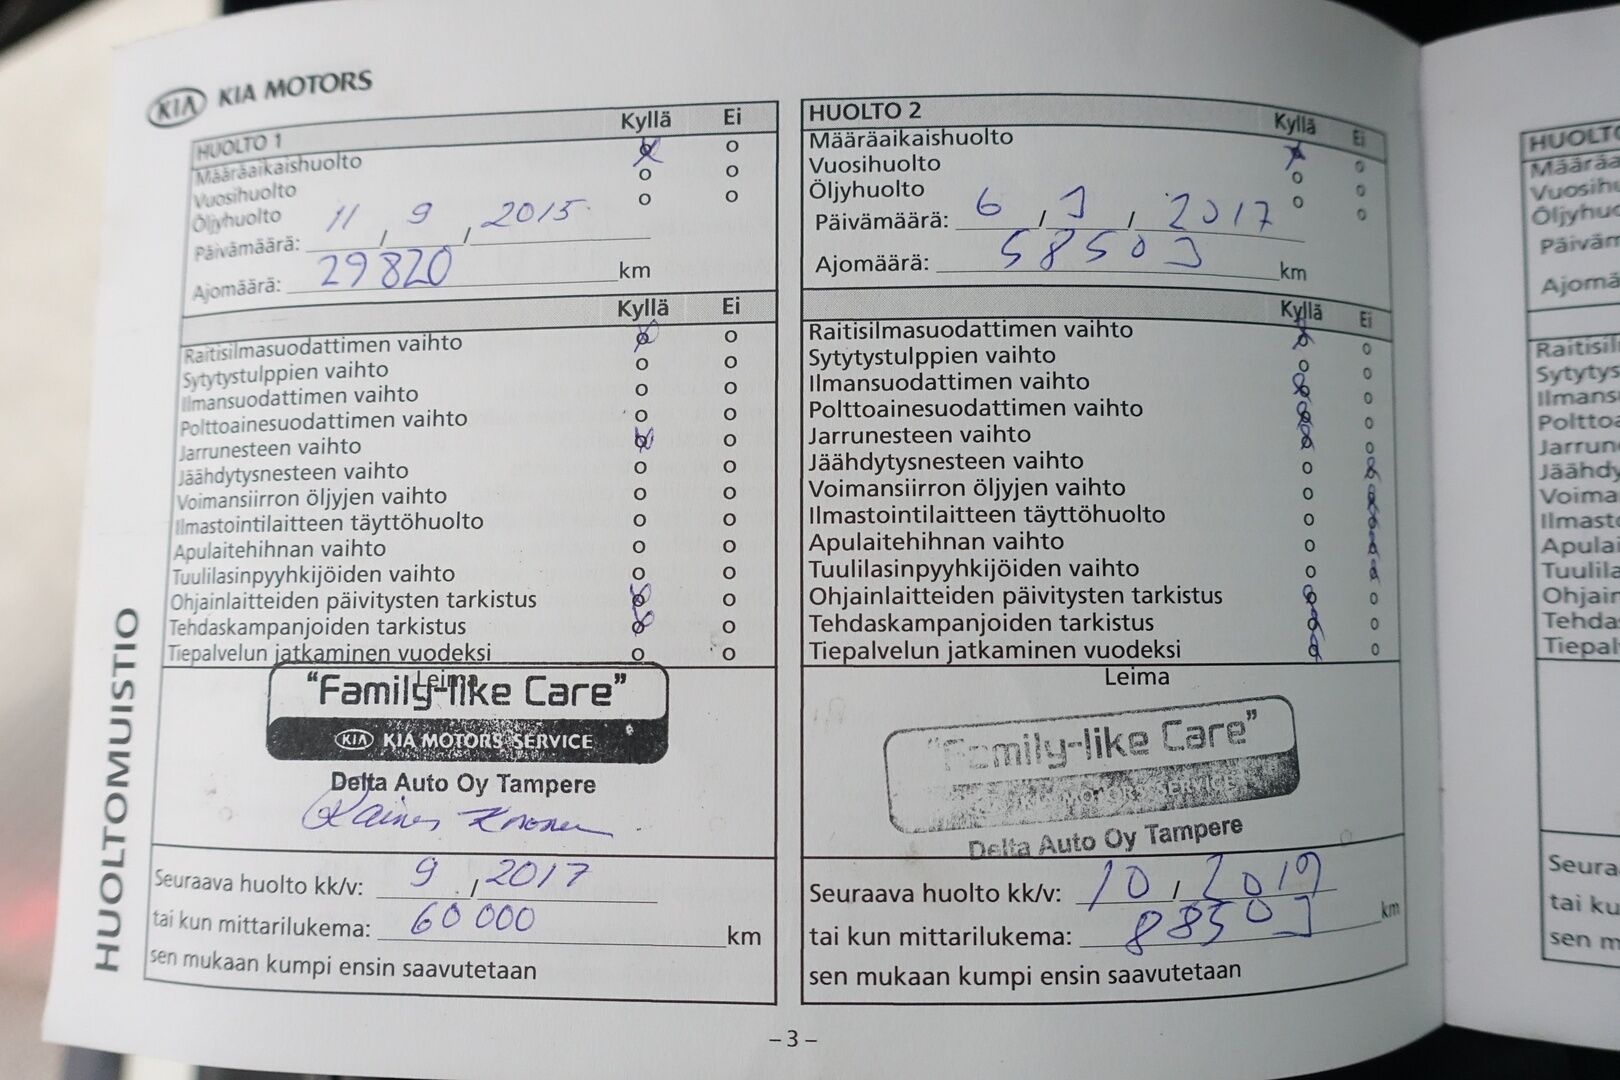 KIA KIA MOTORS
HUOLTO 1 Kyllä Ei
Määräaikaishuolto
Vuosihuolto
Öljyhuolto
Päivämäärä: 11 , 9 , 2015
Ajomäärä: 29820 km
Kyllä Ei
Raitisilmasuodattimen vaihto
Sytytystulppien vaihto
Ilmansuodattimen vaihto
Polttoainesuodattimen vaihto
Jarrunesteen vaihto
Jäähdytysnesteen vaihto
Voimansiirron öljyjen vaihto
Ilmastointilaitteen täyttöhuolto
Apulaitehihnan vaihto
Tuulilasinpyyhkijöiden vaihto
Ohjainlaitteiden päivitysten tarkistus
Tehdaskampanjoiden tarkistus
Tiepalvelun jatkaminen vuodeksi
Leima
"Family-like Care"
KIA KIA MOTORS SERVICE
Delta Auto Oy Tampere
Seuraava huolto kk/v: 9 , 2017
tai kun mittarilukema: 60 000 km
sen mukaan kumpi ensin saavutetaan
HUOLTOMUISTIO
HUOLTO 2 Kyllä Ei
Määräaikaishuolto
Vuosihuolto
Öljyhuolto
Päivämäärä: 6 / / 2017
Ajomäärä: km
Kyllä Ei
Raitisilmasuodattimen vaihto
Sytytystulppien vaihto
Ilmansuodattimen vaihto
Polttoainesuodattimen vaihto
Jarrunesteen vaihto
Jäähdytysnesteen vaihto
Voimansiirron öljyjen vaihto
Ilmastointilaitteen täyttöhuolto
Apulaitehihnan vaihto
Tuulilasinpyyhkijöiden vaihto
Ohjainlaitteiden päivitysten tarkistus
Tehdaskampanjoiden tarkistus
Tiepalvelun jatkaminen vuodeksi
Leima
"Family-like Care"
KIA MOTORS SERVICE
Delta Auto Oy Tampere
Seuraava huolto kk/v: 10 , 2019
tai kun mittarilukema: km
sen mukaan kumpi ensin saavutetaan
– 3 –